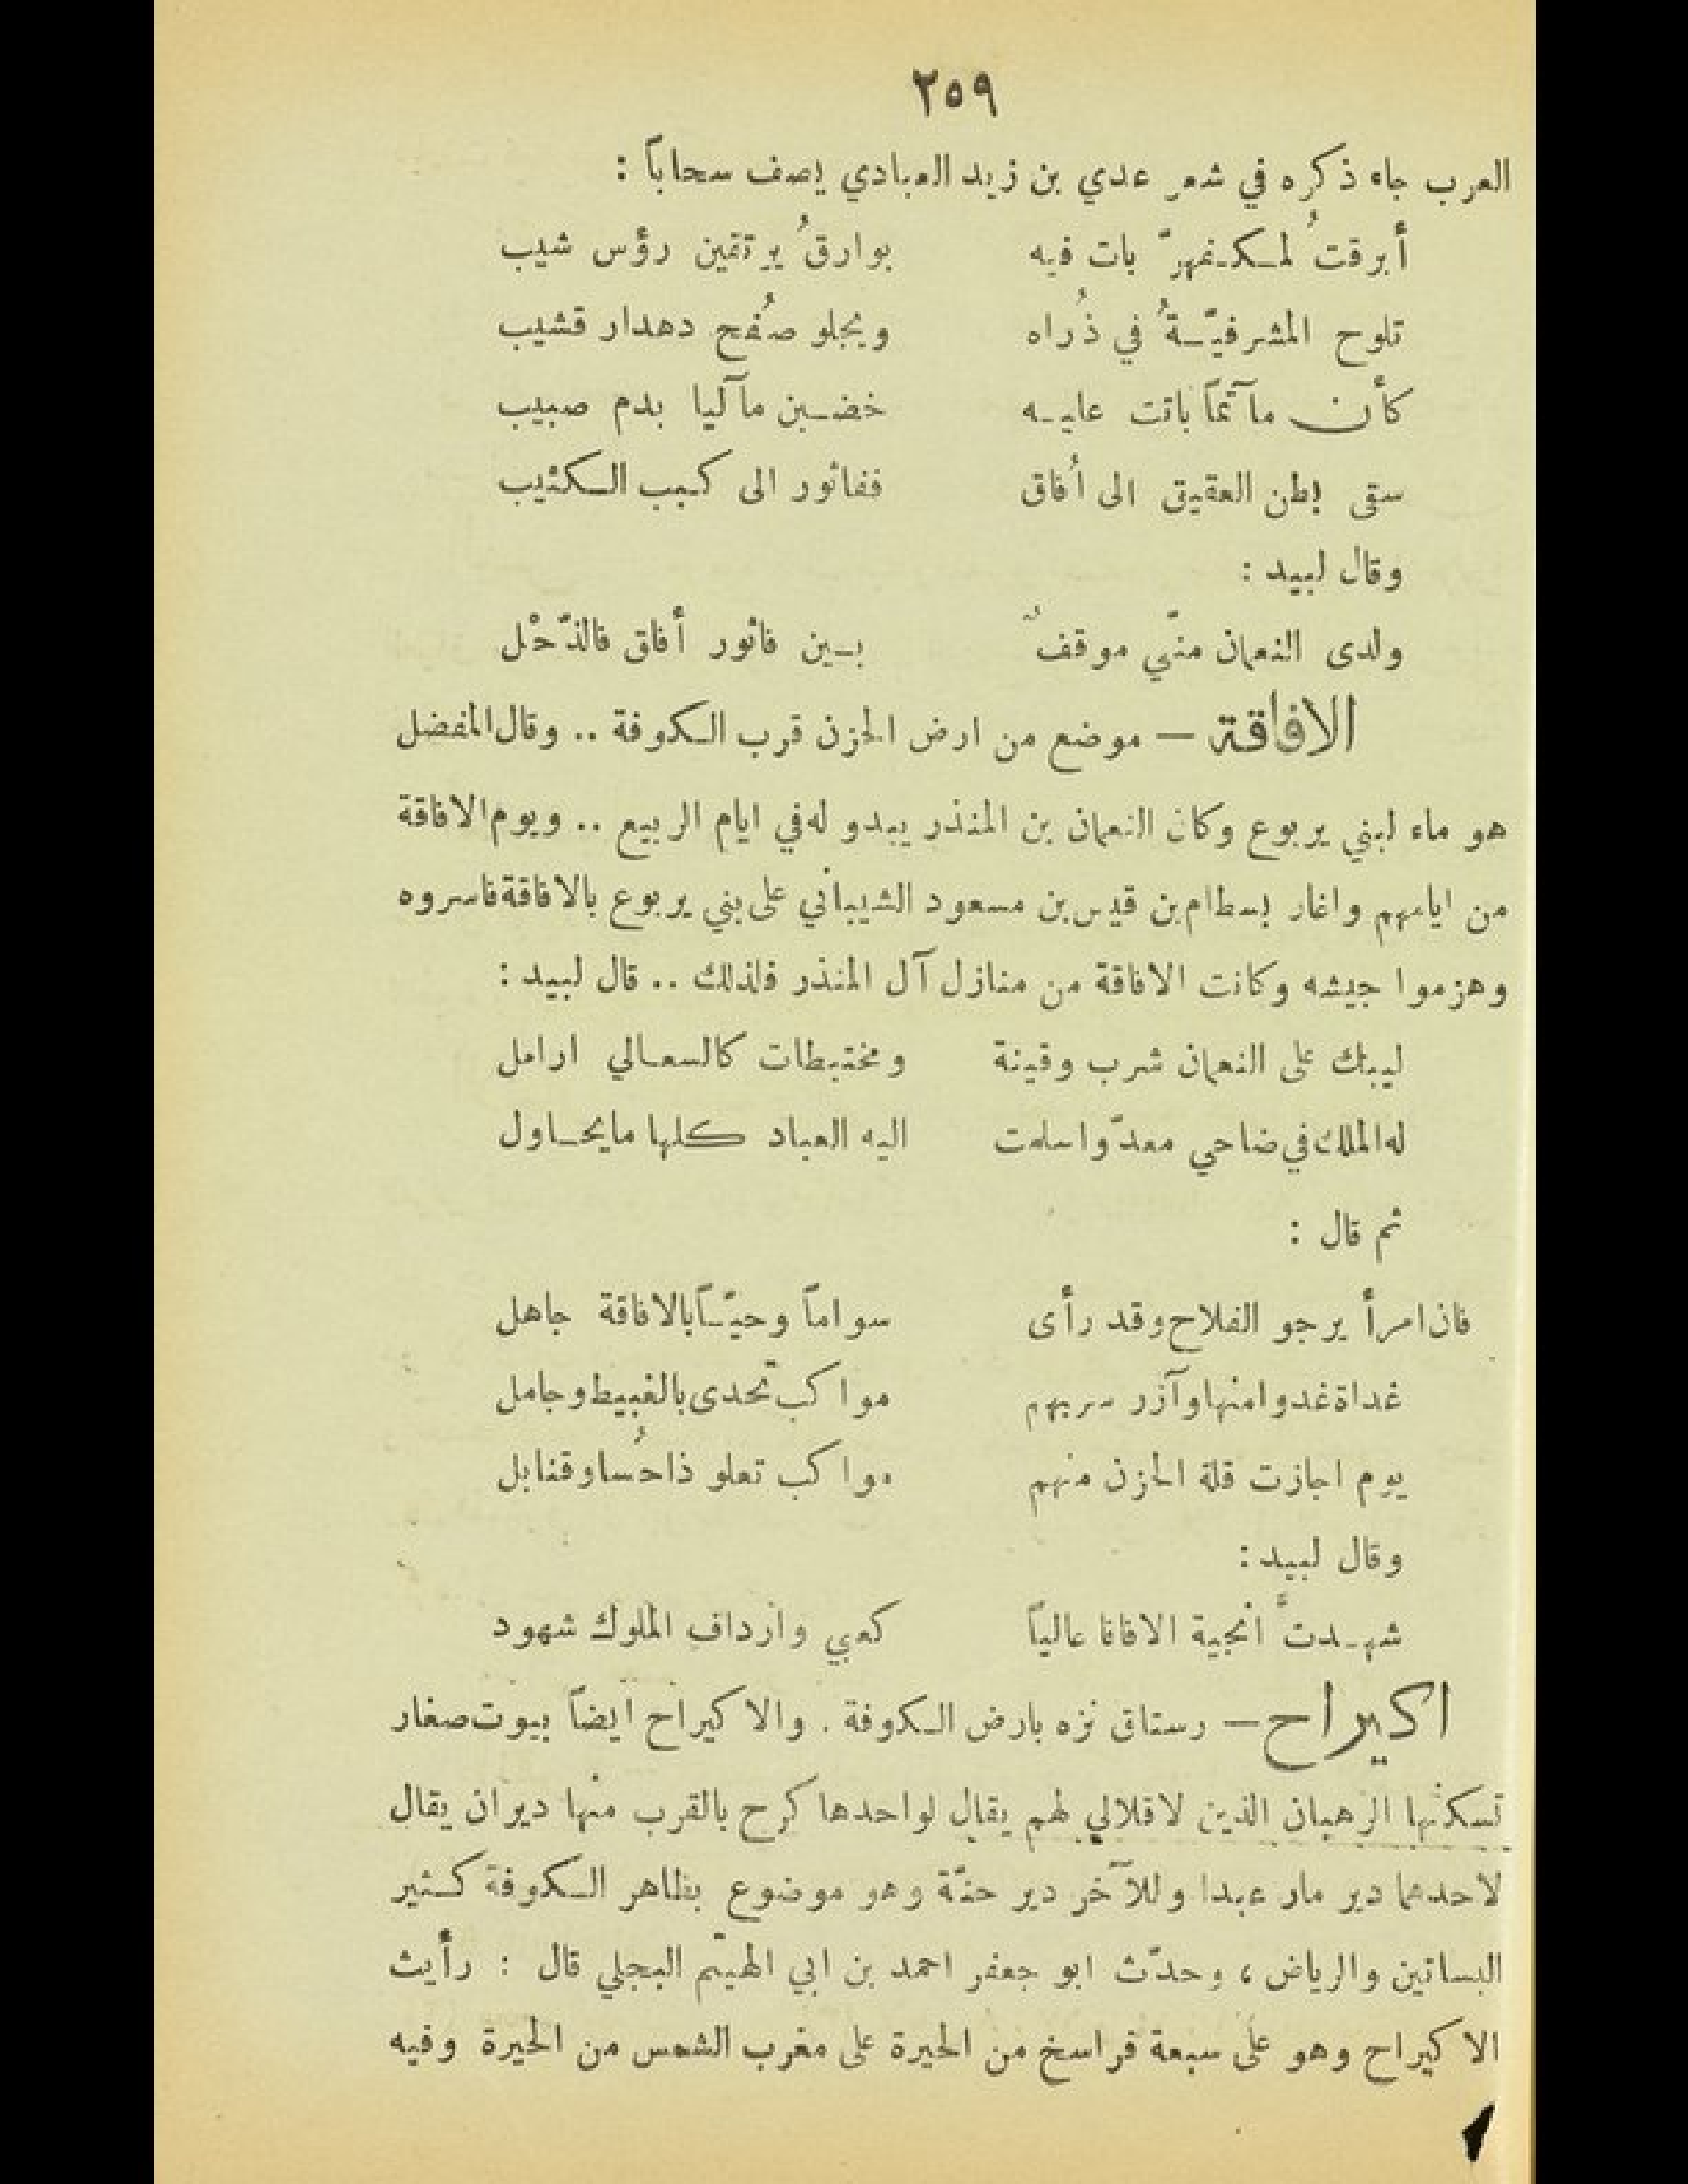 ٢٥٩
العرب جاء ذكره في شعر عدي بن زيد العبادي يصف سحاباً :
أبرقتُ لمكفهرّ بات فيه بوارقُ يرتقين رؤس شيب
تلوح المشرفيّةُ في ذُراه ويجلو صُفح دهدار قشيب
كأن مآتماً باتت عليه خضبن مآليا بدم صبيب
سقى بطن العقيق الى اُفاق ففاثور الى كبب الكثيب
وقال لبيد :
ولدى النعمان منّي موقفٌ بين فاثور أفاق فالدّحْل
الافاقة — موضع من ارض الحزن قرب الكوفة .. وقال المفضل
هو ماء لبني يربوع وكان النعمان بن المنذر يبدو له في ايام الربيع .. ويوم الافاقة
من ايامهم واغار بسطام بن قيس بن مسعود الشيباني على بني يربوع بالافاقة فاسروه
وهزموا جيشه وكانت الافاقة من منازل آل المنذر فلذلك .. قال لبيد :
ليبك على النعمان شرب وقينة ومختبطات كالسعالي ارامل
له الملك في ضاحي معدّ واسلمت اليه العباد كلها مايحاول
ثم قال :
فان امرأ يرجو الفلاح وقد رأى سواماً وحيّاً بالافاقة جاهل
غداة غدوا منها وآزر سربهم مواكب تحدى بالغبيط وجامل
يوم اجازت قلة الحزن منهم مواكب تعلو ذا حُسا وقنابل
وقال لبيد :
شهدتُ انجية الافاقا عالياً كعبي وارداف الملوك شهود
اكيراح — رستاق نزه بارض الكوفة . والاكيراح ايضاً بيوت صغار
تسكنها الرهبان الذين لاقلالي لهم يقال لواحدها كرح بالقرب منها ديران يقال
لاحدهما دير مار عبدا وللآخر دير حنّة وهر موضوع بظاهر الكوفة كثير
البساتين والرياض ، وحدّث ابو جعفر احمد بن ابي الهيثم البجلي قال : رأيث
الاكيراح وهو على سبعة فراسخ من الحيرة على مغرب الشمس من الحيرة وفيه